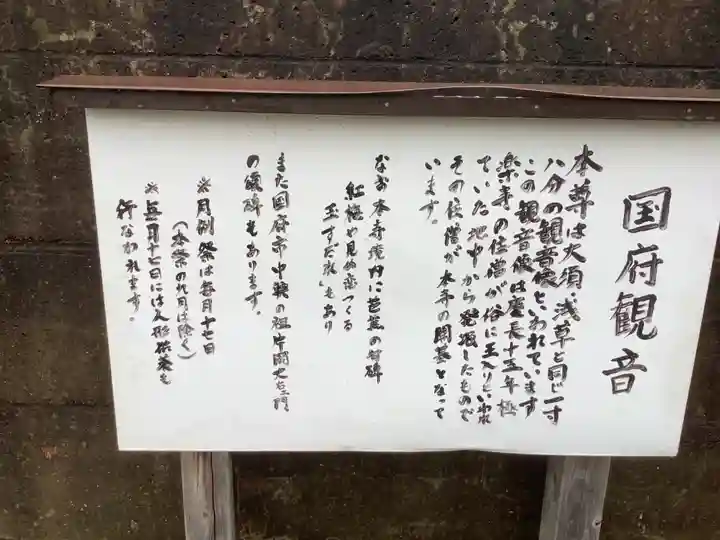 国府観音
本尊は大須、浅草と同じ一寸
八分の観音像といわれています
この観音像は慶長十五年極
楽寺の住僧が俗に王入りといわれ
ていた地中から発掘したもので
その住僧が本寺の開基となって
います。
なお本寺境内に芭蕉の句碑
紅梅や見ぬ恋つくる
玉すだれ」もあり
また国府市中興の祖片岡大右エ門
の頌碑もあります。
※月例祭は毎月十七日
(本祭の九月は除く)
※毎月十七日には人形供養も
行なわれます。